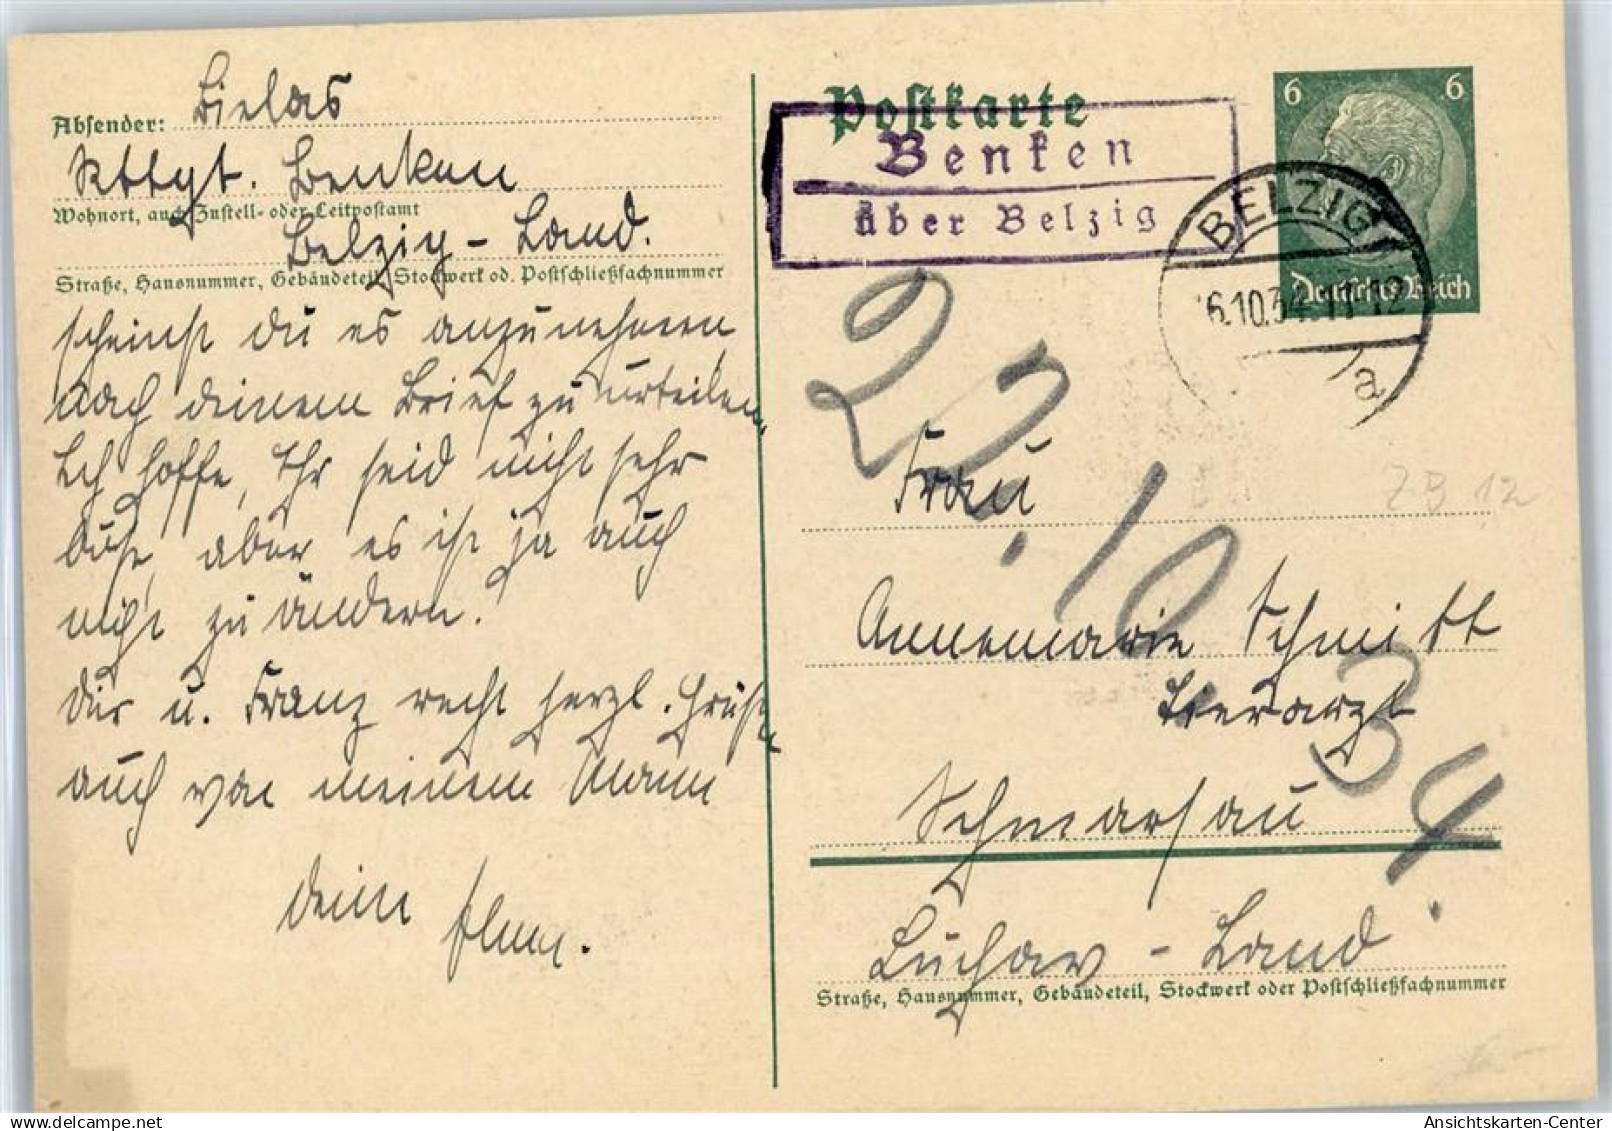 Absender: Bielas
Rttgt. Benken
Wohnort, auch Zustell- oder Leitpostamt
Belzig-Land.
Straße, Hausnummer, Gebäudeteil, Stockwerk od. Postschließfachnummer
scheinst du es anzunehmen
nach deinem Brief zu urteilen
Ich hoffe, Ihr seid nicht sehr
böse, aber es ist ja auch
nicht zu ändern.
Dir u. Franz recht herzl. Grüße
auch von meinem Mann
deine
Postkarte
Benken
über Belzig
6 6
Deutsches Reich
BELZIG
6.10.34.11-12
a
2?.10
34.
Frau
ZB 12
Annemarie Schmitt
Tierarzt
Schmarsau
Lüchow-Land
Straße, Hausnummer, Gebäudeteil, Stockwerk oder Postschließfachnummer
Ansichtskarten-Center